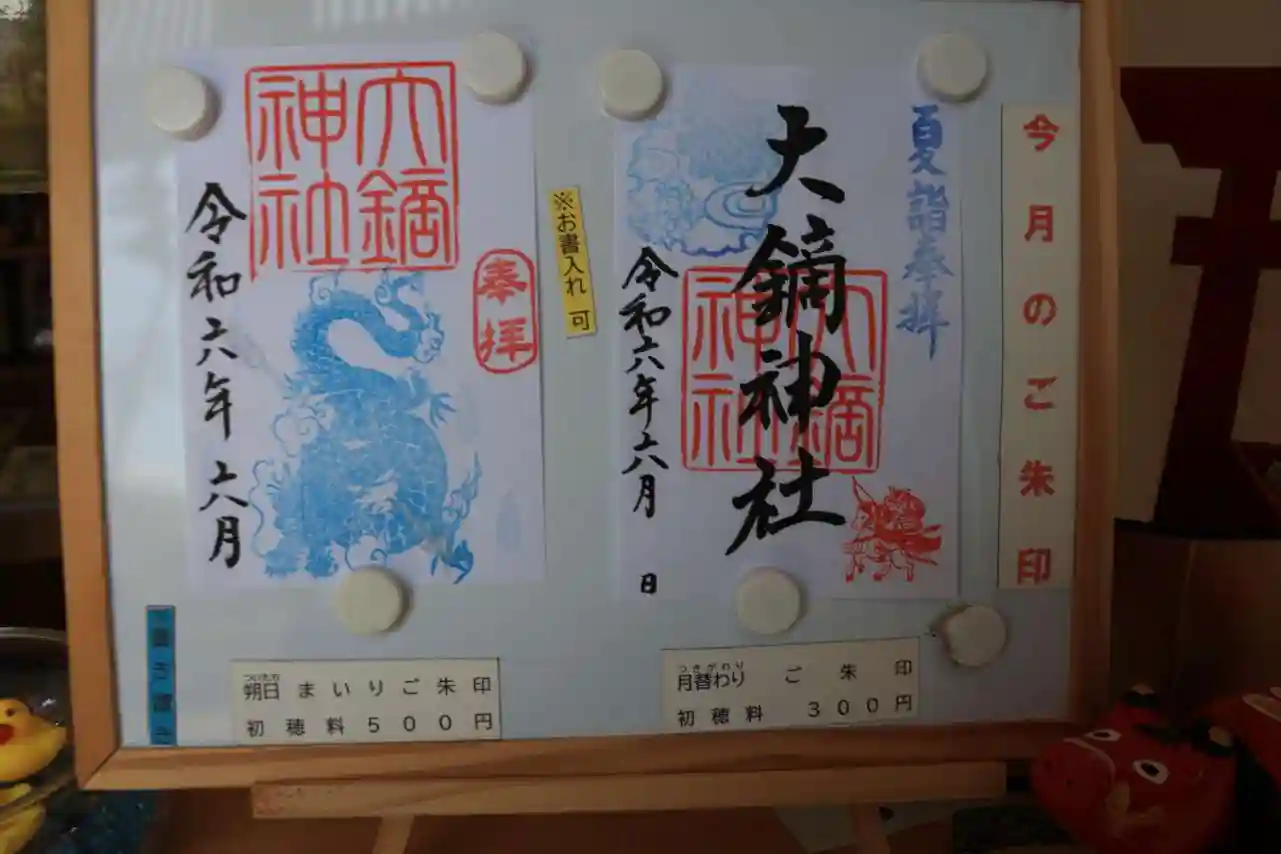 今月のご朱印
夏詣奉拝
大鏑神社
大鏑
神社
令和六年六月
日
※お書入れ 可
大鏑
神社
奉拝
令和六年六月
つきがわり
月替わり ご朱印
初穂料 300円
ついたち
朔日まいりご朱印
初穂料500円
書き置き